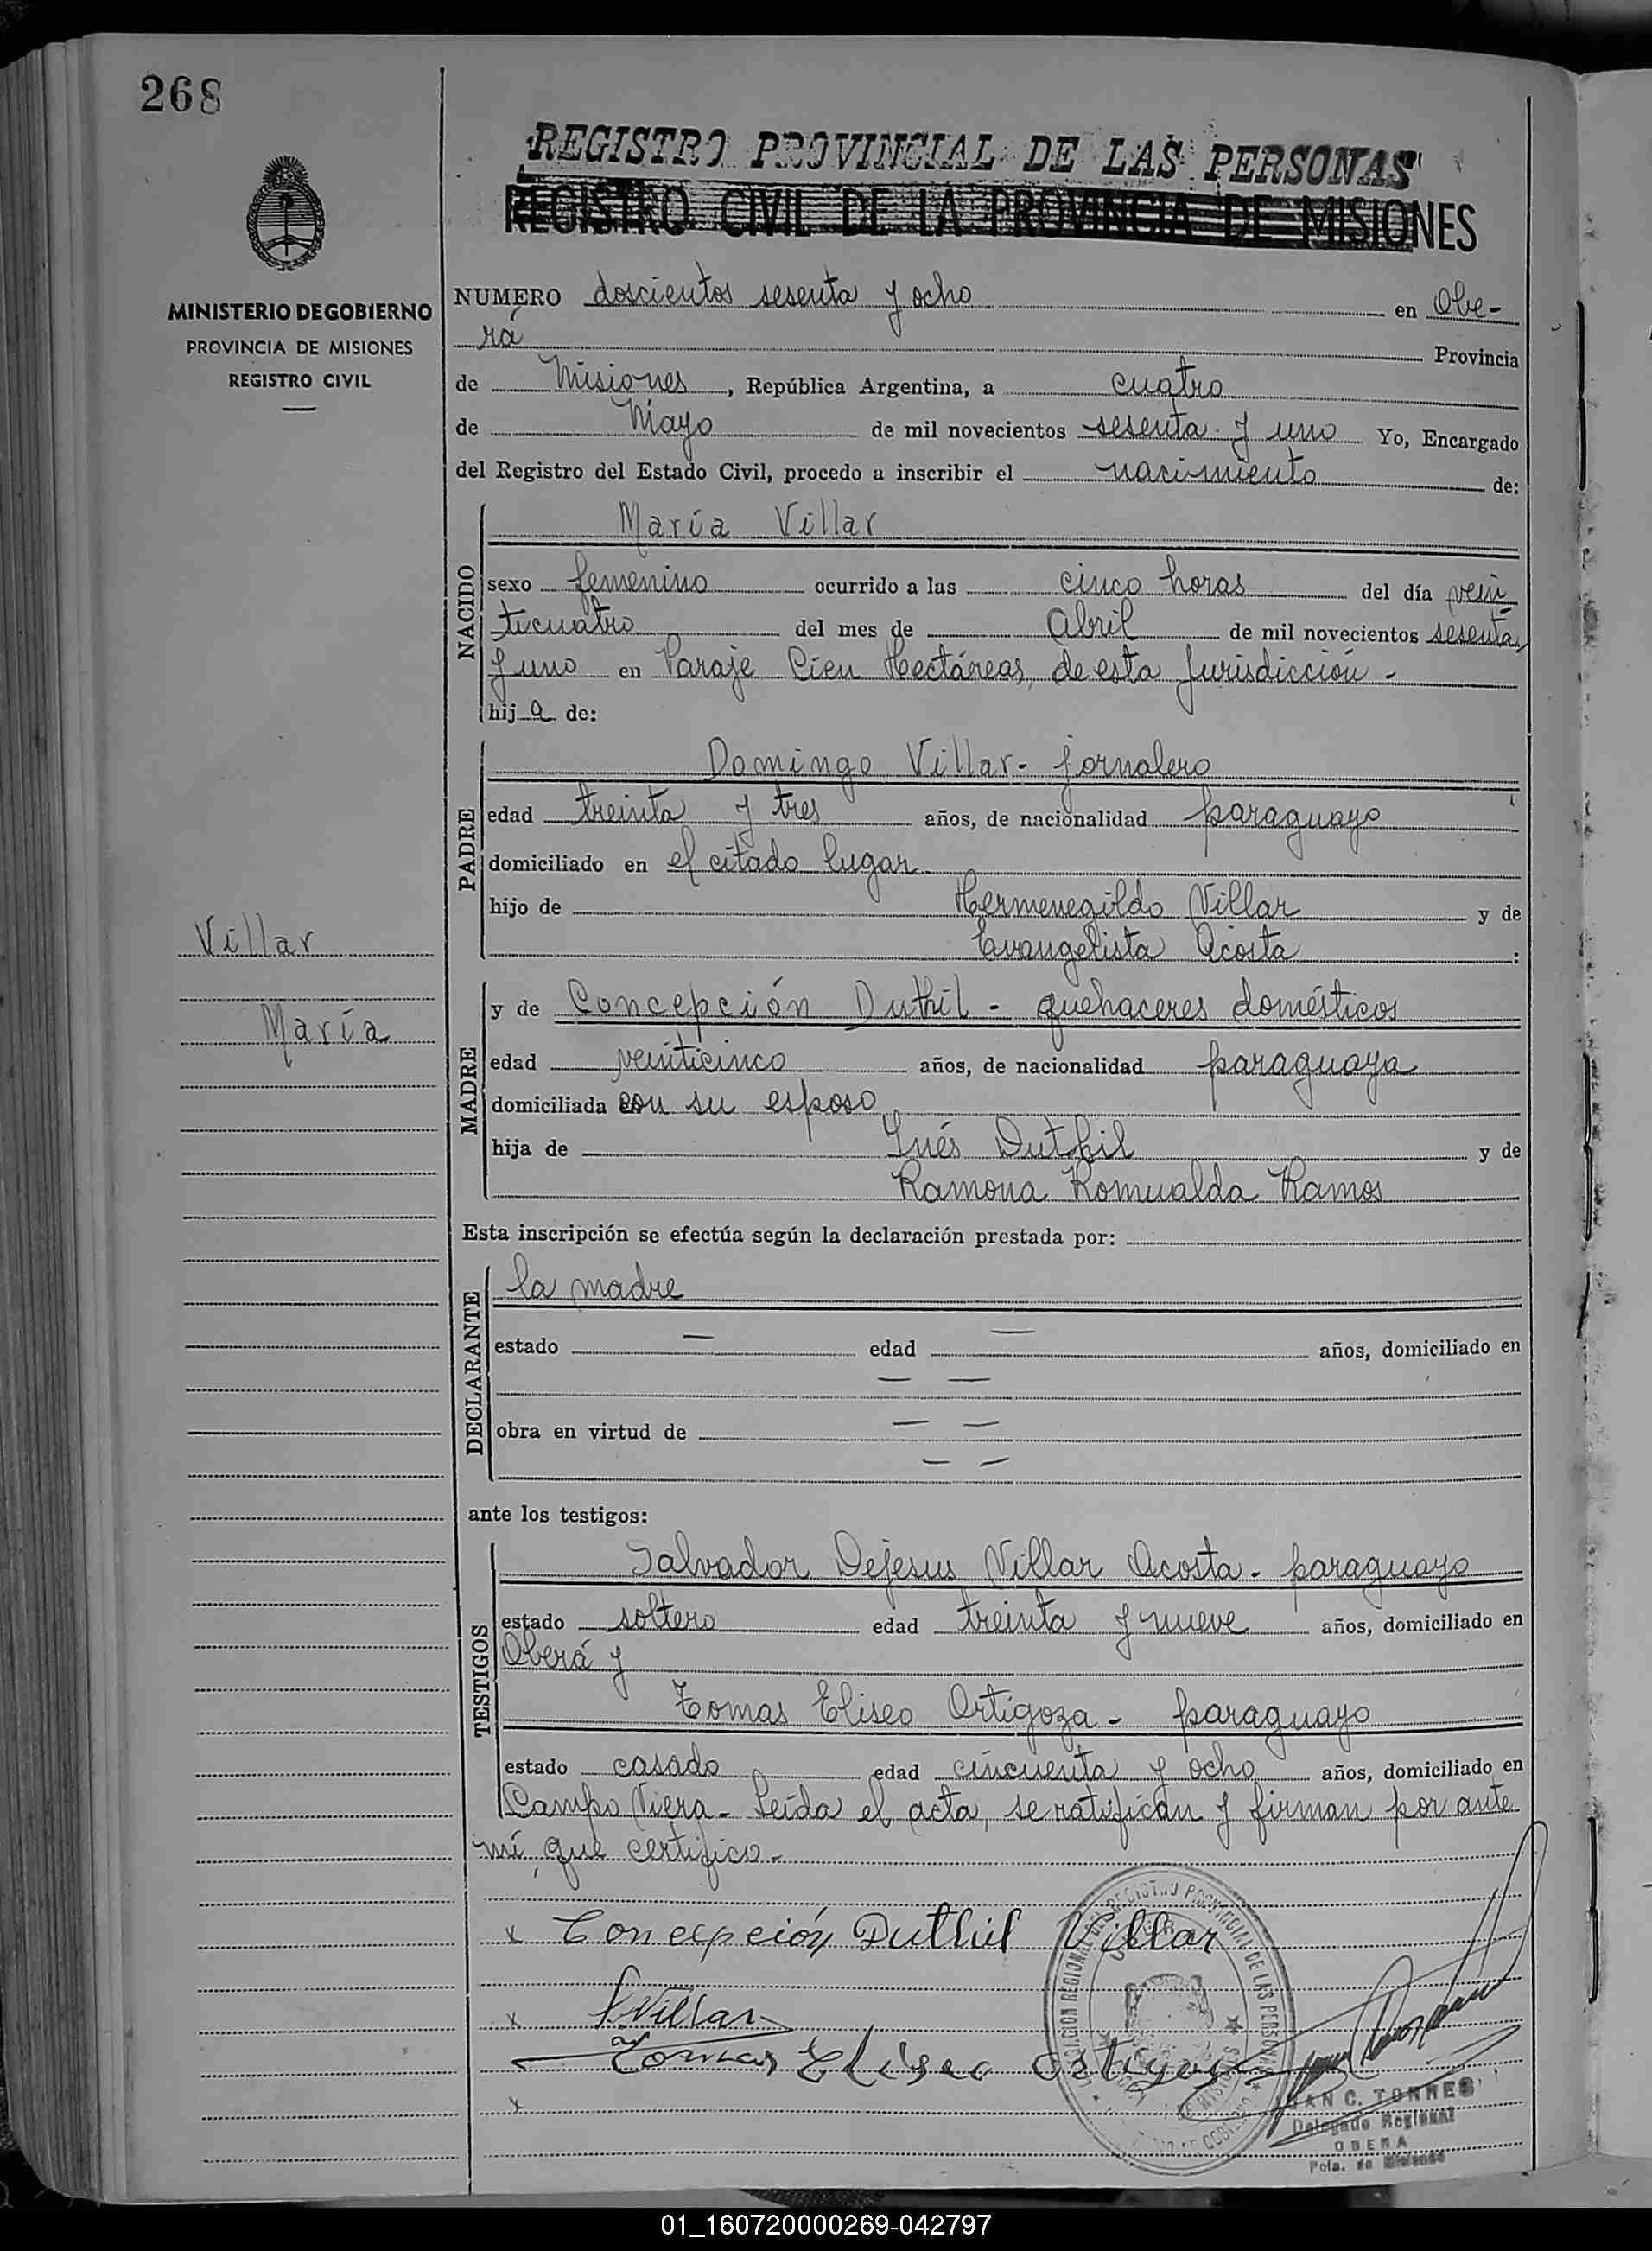 268
REGISTRO PROVINCIAL DE LAS PERSONAS
REGISTRO CIVIL DE LA PROVINCIA DE MISIONES
MINISTERIO DE GOBIERNO
PROVINCIA DE MISIONES
REGISTRO CIVIL
NUMERO doscientos sesenta y ocho en Obe-
rá Provincia
de Misiones, República Argentina, a cuatro
de Mayo de mil novecientos sesenta y uno Yo, Encargado
del Registro del Estado Civil, procedo a inscribir el nacimiento de:
NACIDO
María Villar
sexo femenino ocurrido a las cinco horas del día vein
ticuatro del mes de Abril de mil novecientos sesenta
y uno en Paraje Cien Hectáreas, de esta Jurisdicción -
hija de:
PADRE
Domingo Villar - jornalero
edad treinta y tres años, de nacionalidad paraguayo
domiciliado en el citado lugar
hijo de Hermenegildo Villar y de
Evangelista Acosta :
Villar
María
MADRE
y de Concepción Duthil - quehaceres domésticos
edad veinticinco años, de nacionalidad paraguaya
domiciliada con su esposo
hija de Inés Duthil y de
Ramona Romualda Ramos
Esta inscripción se efectúa según la declaración prestada por:
DECLARANTE
la madre
estado — edad — años, domiciliado en
— —
obra en virtud de — —
— —
ante los testigos:
TESTIGOS
Salvador Dejesus Villar Acosta - paraguayo
estado soltero edad treinta y nueve años, domiciliado en
Oberá y
Tomas Eliseo Ortigoza - paraguayo
estado casado edad cincuenta y ocho años, domiciliado en
Campo Viera - Leída el acta, se ratifican y firman por ante
mí, que certifico -
x Concepción Duthil Villar
x SVillar
Tomas Eliseo Ortigoza
x
JUAN C. TORRES
Delegado Regional
OBERA
Pcia. de Misiones
01_160720000269-042797